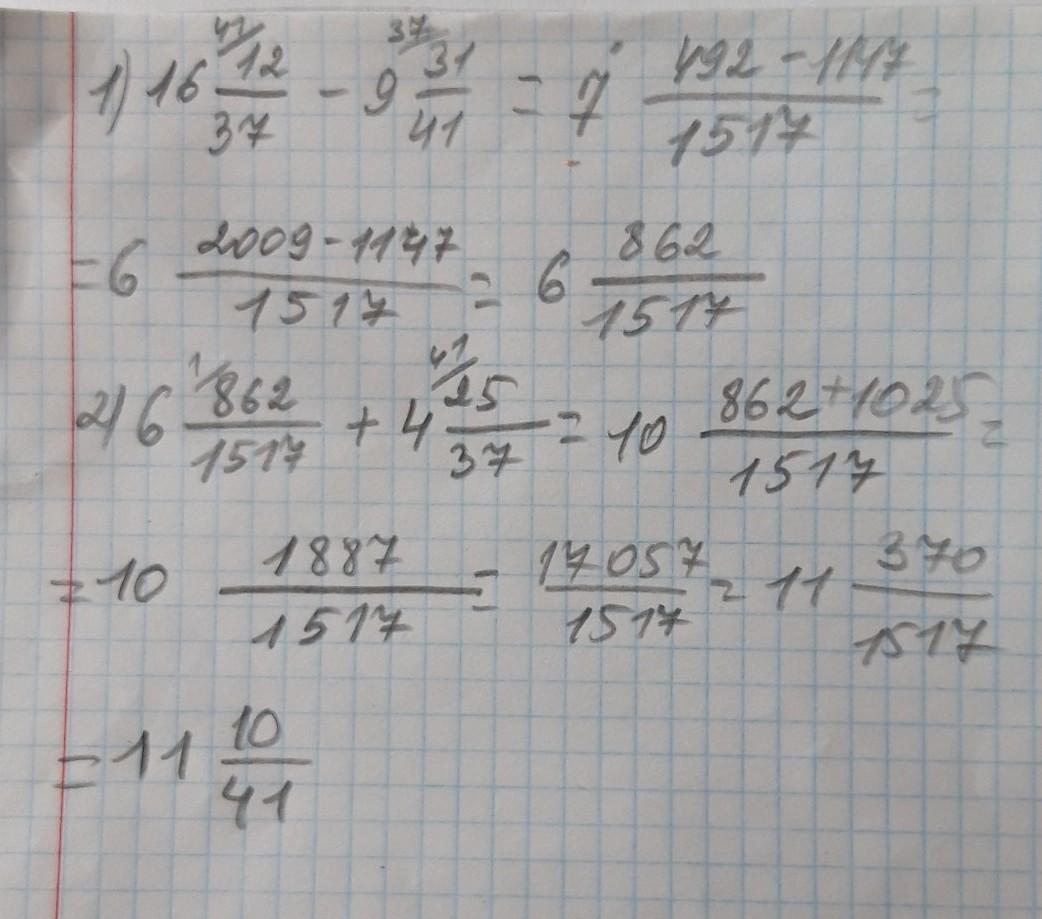 1) 16 41/12/37 - 9 37/31/41 = 7 492-1147/1517 =
= 6 2009-1147/1517 = 6 862/1517
2) 6 1/862/1517 + 4 41/25/37 = 10 862+1025/1517 =
= 10 1887/1517 = 17057/1517 = 11 370/1517
= 11 10/41